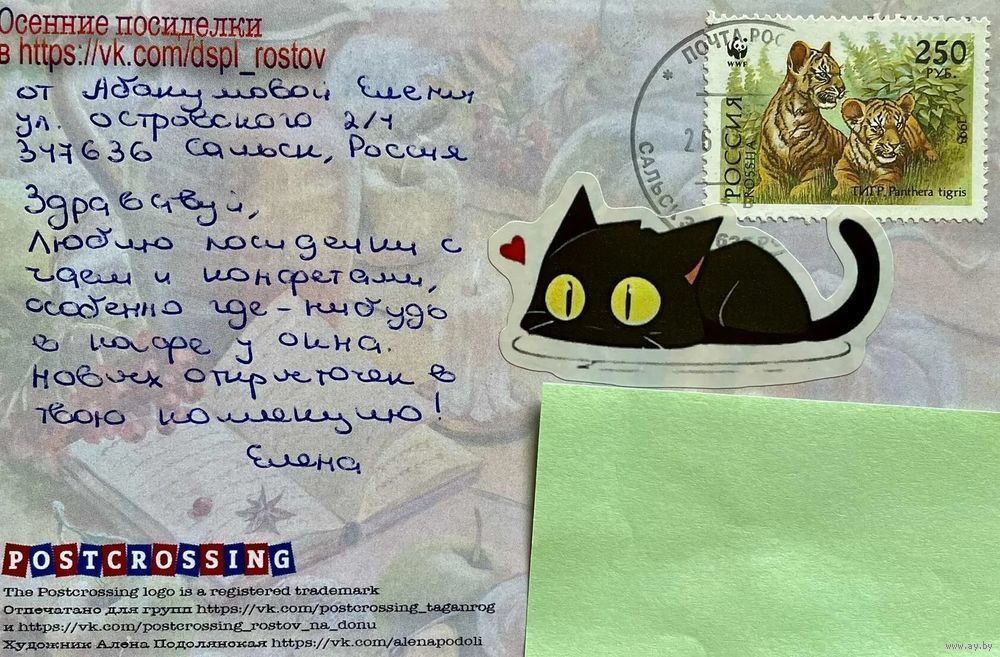 Осенние посиделки
в https://vk.com/dspl_rostov
от Абакумовой Елены
ул. Островского 2/4
347636 Сальск, Россия
Здравствуй,
Люблю посиделки с
чаем и конфетами,
особенно где-нибудь
в кафе у окна.
Новых открыточек в
твою коллекцию!
Елена
ПОЧТА РОС
26
САЛЬСК
WWF
250
РУБ.
РОССИЯ
ROSSIJA
1993
ТИГР. Panthera tigris
POSTCROSSING
The Postcrossing logo is a registered trademark
Отпечатано для групп https://vk.com/postcrossing_taganrog
и https://vk.com/postcrossing_rostov_na_donu
Художник Алена Подолянская https://vk.com/alenapodoli
www.ay.by